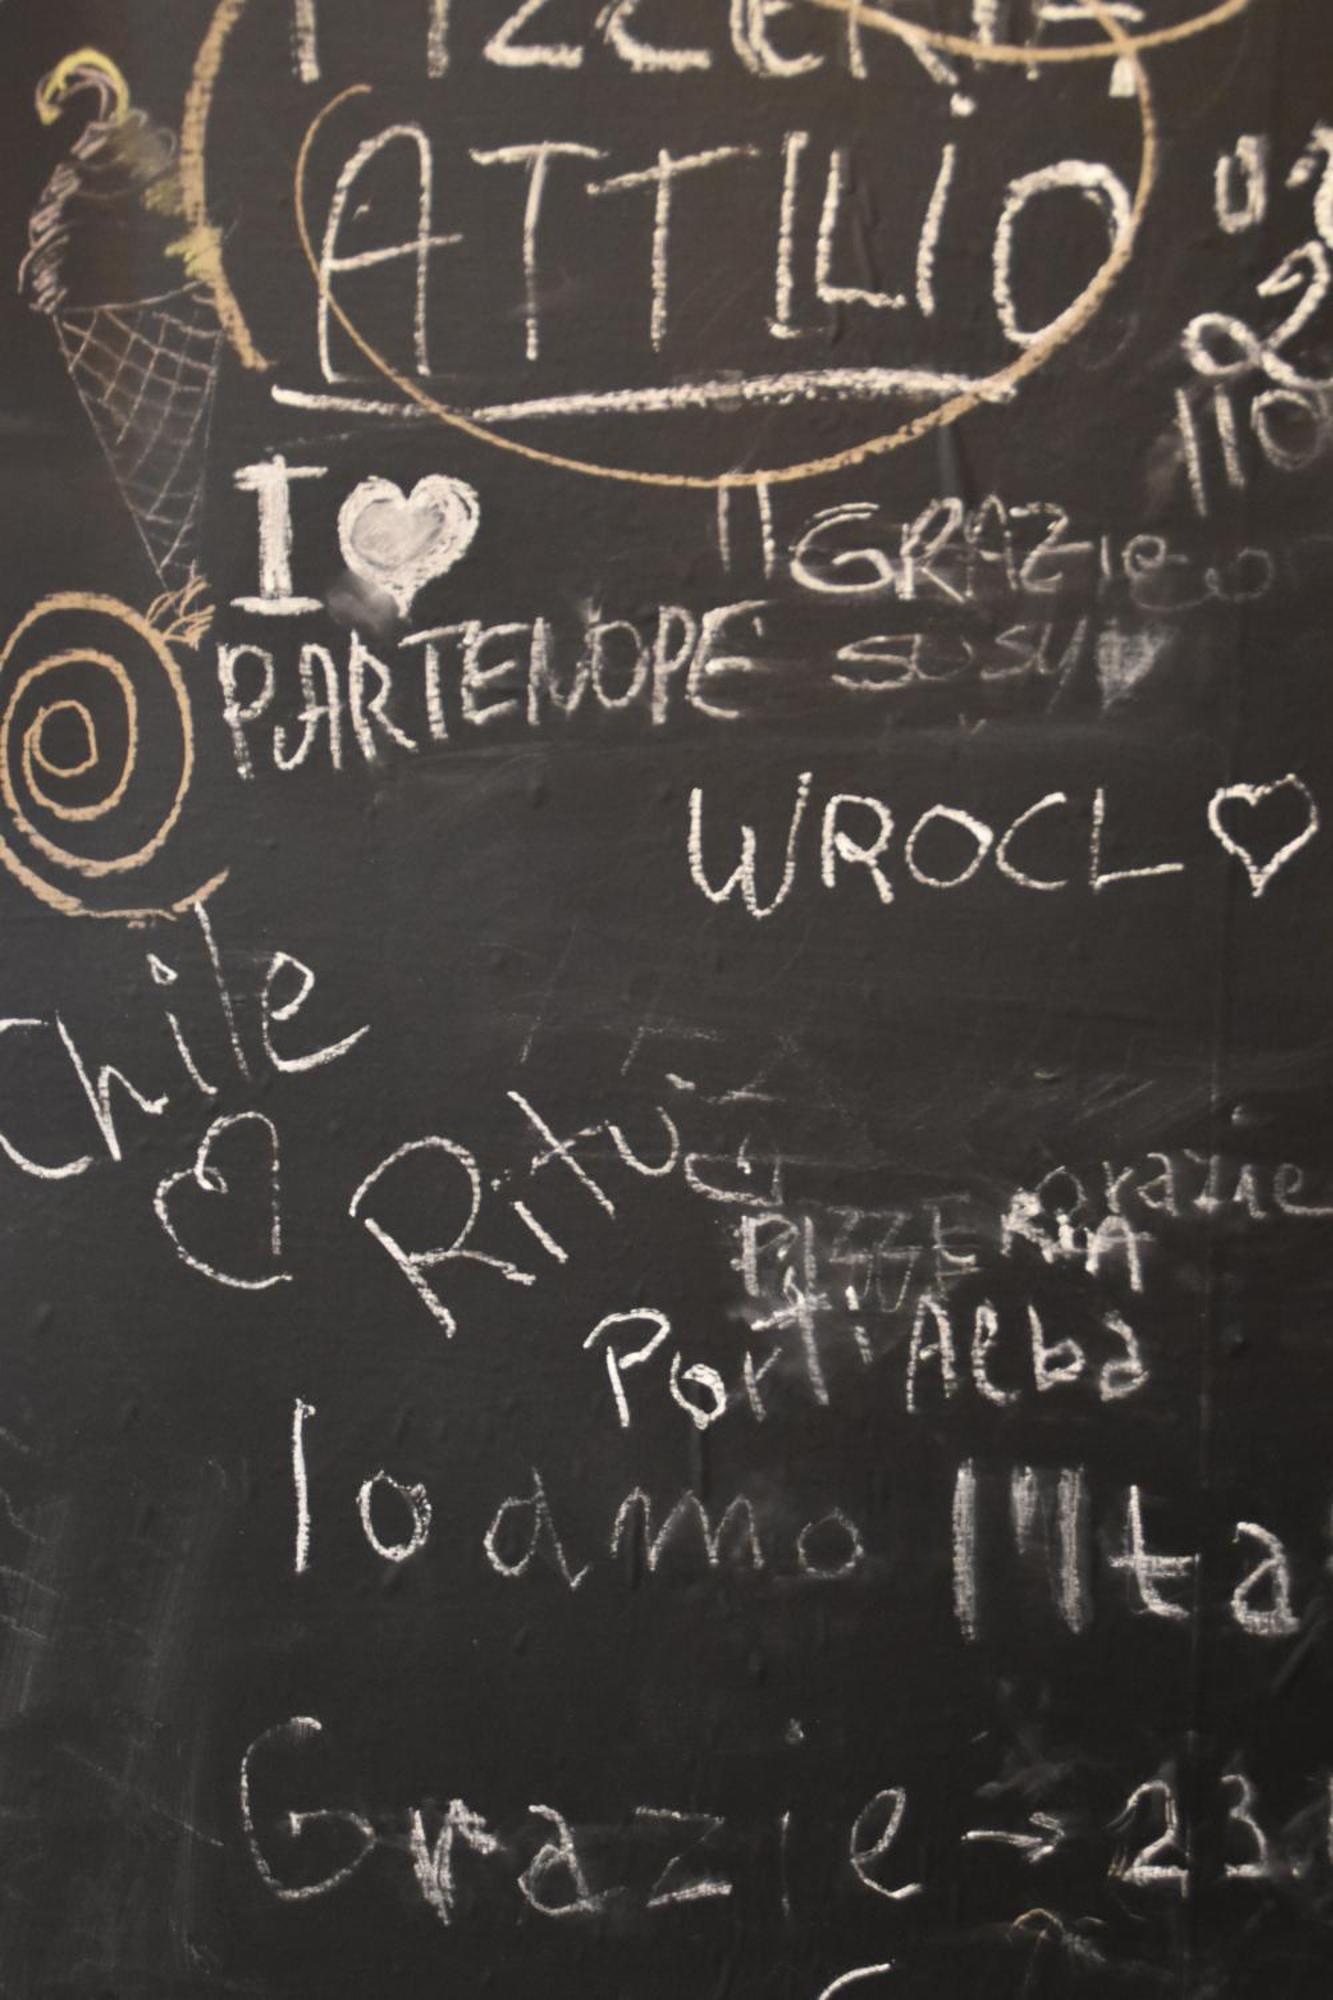 PIZZERIA
ATTILIO
I ♥
PARTENOPE
"GRAZie
SUSY ♥
WROCL ♡
Chile
♡
Ritu
grazie
PIZZERIA
Port'Alba
Io amo
Grazie → 23